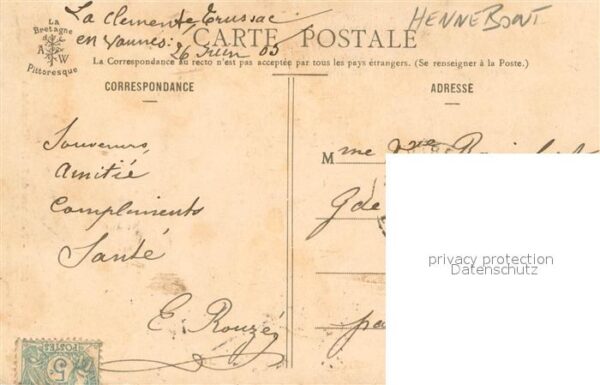 La Clemente, Trussac
HENNEBONT
en Vannes. 26 Juin 05
La
Bretagne
A W
Pittoresque
CARTE POSTALE
La Correspondance au recto n'est pas acceptée par tous les pays étrangers. (Se renseigner à la Poste.)
CORRESPONDANCE
ADRESSÉ
Souvenirs,
Amitié
Compliments
Santé
E. Rouzé
Mme Vve
Gde
privacy protection
Datenschutz
POSTES
5